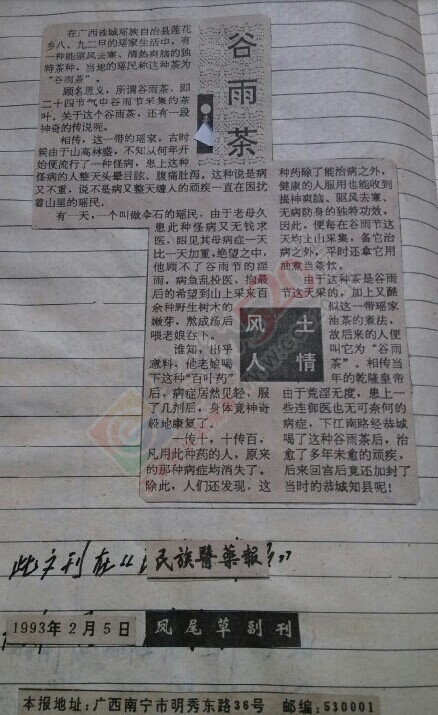 谷雨茶
在广西恭城瑶族自治县莲花
乡八、九二甲的瑶家生活中，有
一种能驱风去寒、清热爽脑的独
特茶种，当地的瑶民称这种茶为
“谷雨茶”。
顾名思义，所谓谷雨茶，即
二十四节气中谷雨节采集的茶
叶。关于这个谷雨茶，还有一段
神奇的传说呢。
相传，这一带的瑶家，古时
候由于山高林盛，不知从何年开
始便流行了一种怪病，患上这种
怪病的人整天头晕目眩、腹痛肚泻。这种说是病
又不重，说不是病又整天缠人的顽疾一直在困扰
着山里的瑶民。
有一天，一个叫做伞石的瑶民，由于老母久
患此种怪病又无钱求
医，眼见其母病症一天
比一天加重，绝望之中，
他顾不了谷雨节的淫
雨，病急乱投医，抱最
后的希望到山上采来百
余种野生树木的
嫩芽，熬成汤后
喂老娘吞下。
谁知，出乎
意料，他老娘喝
下这种“百叶药”
后，病症居然见轻，服
了几剂后，身体竟神奇
般地康复了。
一传十，十传百，
凡用此种药的人，原来
的那种病症均消失了。
除此，人们还发现，这
种药除了能治病之外，
健康的人服用也能收到
提神爽脑、驱风去寒、
无病防身的独特功效，
因此，便每在谷雨节这
天均上山采集，备它治
病之外，平时还拿它用
油煮当茶饮。
由于这种茶是谷雨
节这天采的，加上又酷
似这一带瑶家
油茶的煮法，
故后来的人便
叫它为“谷雨
茶”。相传当
年的乾隆皇帝
由于荒淫无度，患上了
一些连御医也无可奈何的
病症，下江南路经恭城
喝了这种谷雨茶后，治
愈了多年未愈的顽疾，
后来回宫后竟还加封了
当时的恭城知县呢！
风土
人情
此文刊在“民族医药报”
1993年2月5日 凤尾草副刊
本报地址：广西南宁市明秀东路36号 邮编：530001